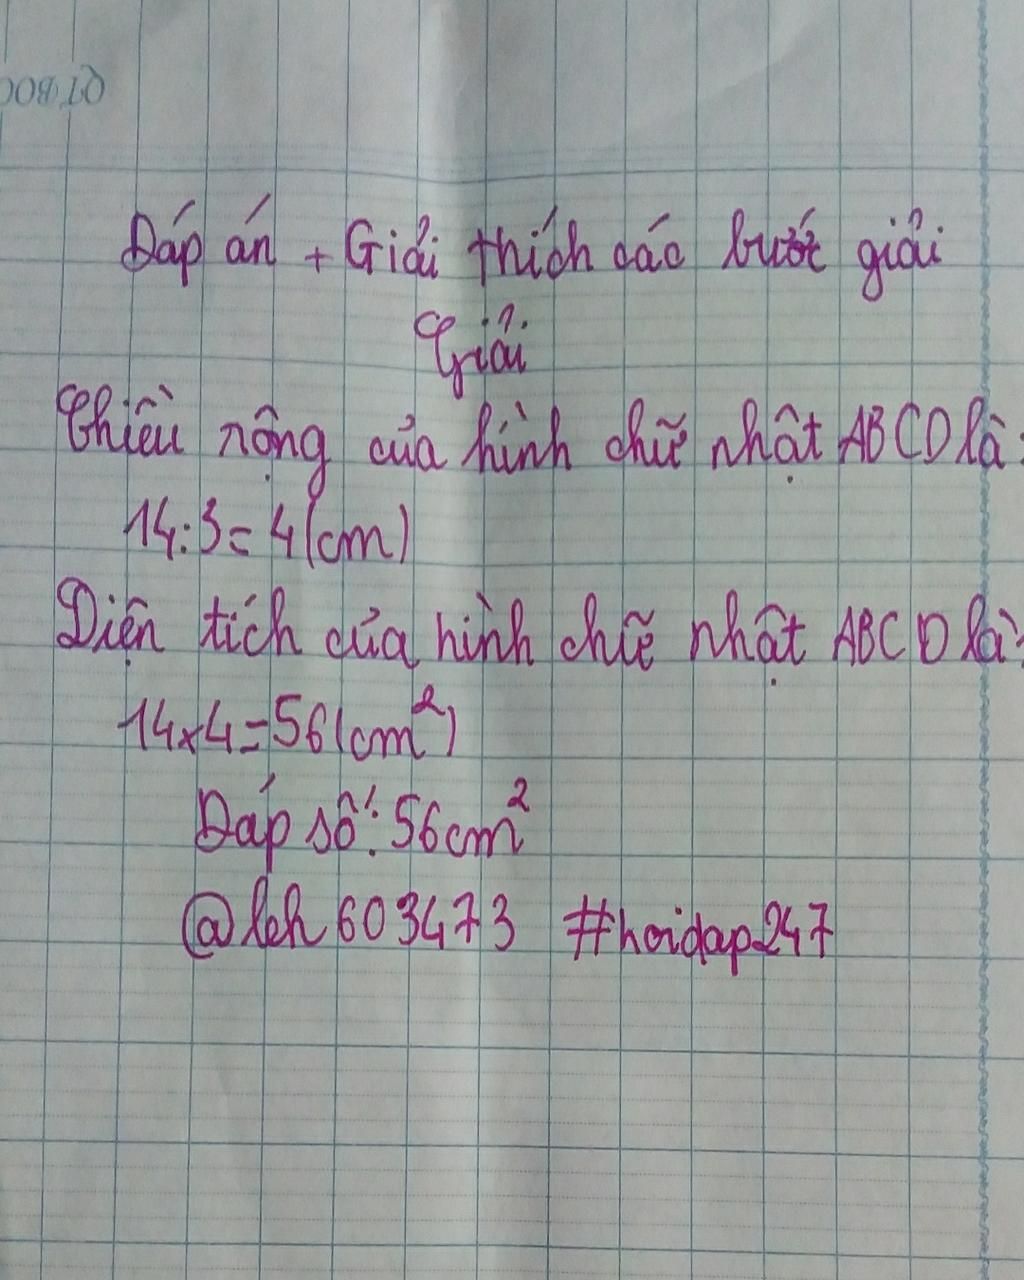 Đáp án + Giải thích các bước giải
Giải
Chiều rộng của hình chữ nhật ABCD là:
14:3=4(cm)
Diện tích của hình chữ nhật ABCD là:
14x4=56(cm²)
Đáp số: 56cm²
@leh603473 #hoidap247